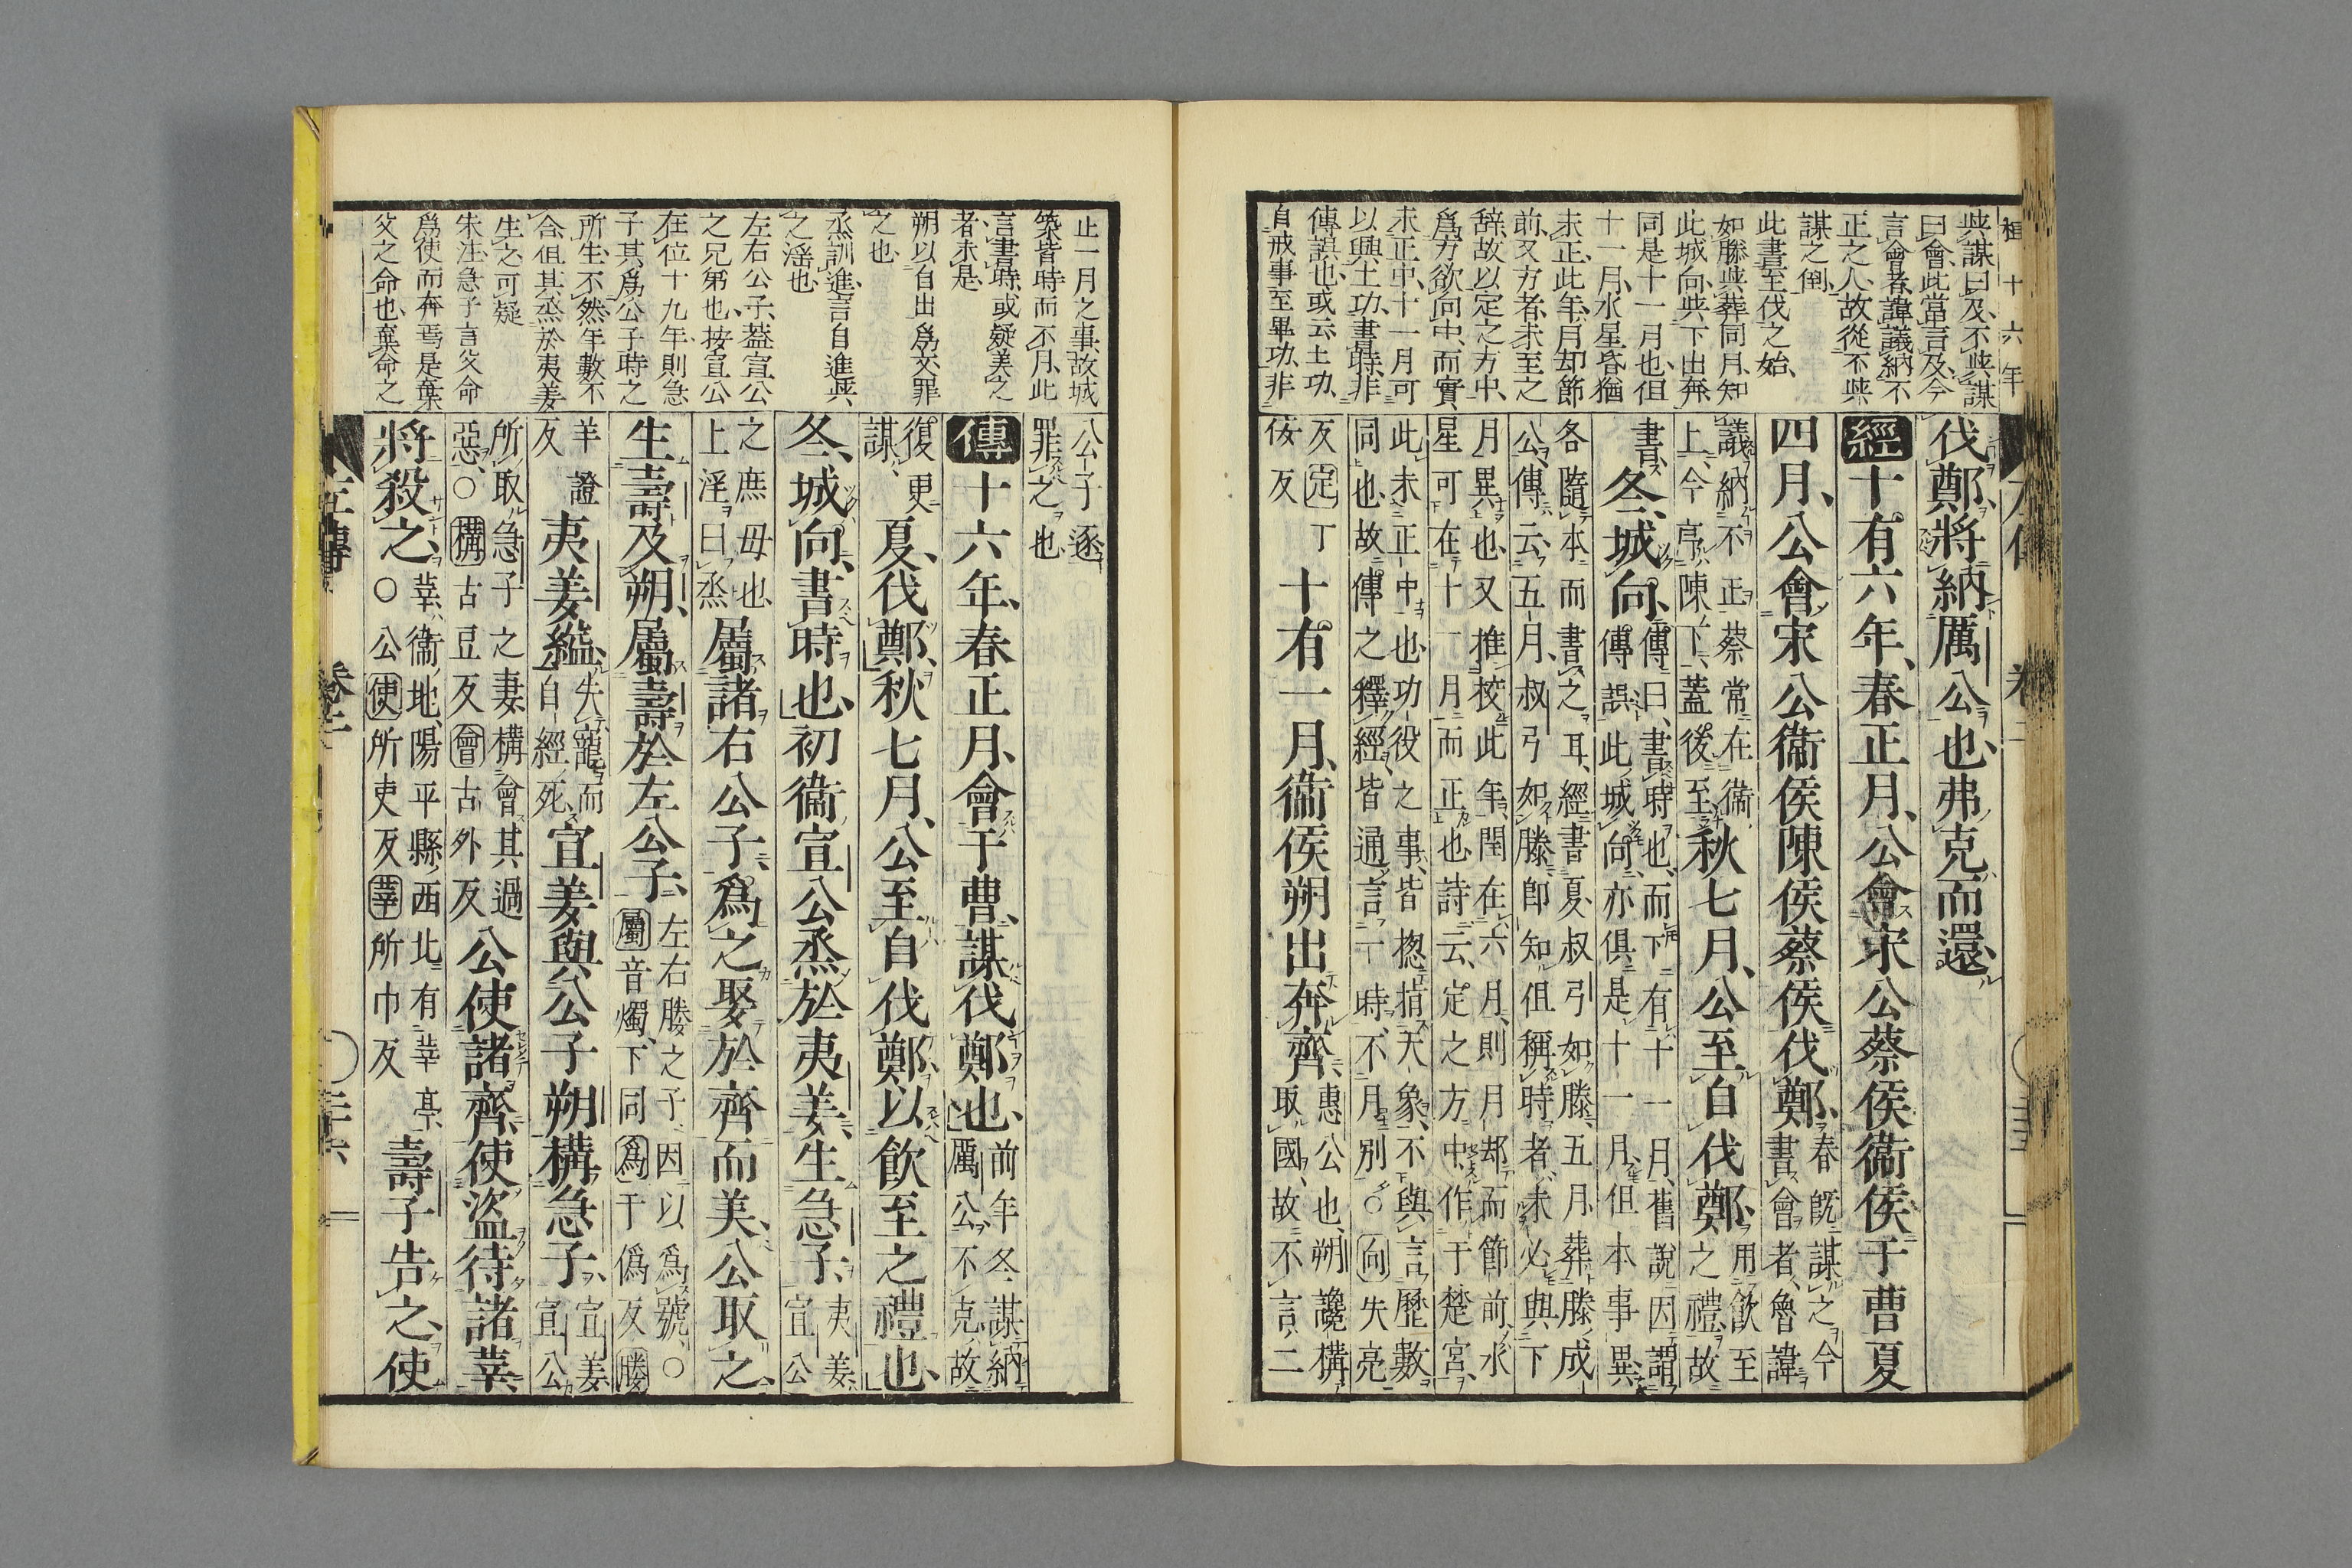 桓十六年
與謀曰及不與謀
曰會此當言及今
言會者諱議納不
正之人故從不與
謀之例
此書至伐之始
如滕與葬同月知
此城向與下出奔
同是十一月也但
十一月水星昏猶
未正此年月却節
前又方者未至之
辭故以定之方中
爲方欲向中而實
未正中十一月可
以興土功書時非
傳誤也或云土功
自戒事至畢功非
伐鄭將納厲公也弗克而還
經十有六年春正月公會宋公蔡侯衞侯于曹夏
四月公會宋公衞侯陳侯蔡侯伐鄭
春既謀之今
書會者魯諱
議納不正蔡常在衞
上今序陳下蓋後至
秋七月公至自伐鄭
用飮至
之禮故
書
冬城向
傳曰書時也而下有十一月舊說因謂
傳誤此城向亦俱是十一月但本事異
各隨本而書之耳經書夏叔弓如滕五月葬滕成
公傳云五月叔弓如滕卽知但稱時者未必與下
月異也又推校此年閏在六月則月却而節前水
星可在十一月而正也詩云定之方中作于楚宮
此未正中也功役之事皆揔指天象不與言歷數
同也故傳之釋經皆通言一時不月別○向失亮
反定丁
佞反
十有一月衞侯朔出奔齊
惠公也朔讒構
取國故不言二
止一月之事故城
築皆時而不月此
言書時或疑美之
者未是
朔以自出爲文罪
之也
烝訓進言自進與
之淫也
左右公子蓋宣公
之兄弟也按宣公
在位十九年則急
子其爲公子時之
所生不然年數不
合但其烝於夷姜
生之可疑
朱注急子言父命
爲使而奔焉是棄
父之命也棄命之
公子逐
罪之也
傳十六年春正月會于曹謀伐鄭也
前年冬謀納
厲公不克故
復更
謀
夏伐鄭秋七月公至自伐鄭以飮至之禮也
冬城向書時也初衞宣公烝於夷姜生急子
夷姜
宣公
之庶母也
上淫曰烝
屬諸右公子爲之娶於齊而美公取之
生壽及朔屬壽於左公子
左右媵之子因以爲號○
屬音燭下同爲于僞反媵
羊證
反
夷姜縊
失寵而
自經死
宣姜與公子朔構急子
宣姜
宣公
所取急子之妻構會其過
惡○構古豆反會古外反
公使諸齊使盜待諸莘
將殺之
莘衞地陽平縣西北有莘亭
○公使所吏反莘所巾反
壽子告之使
左傳 卷二 二十六